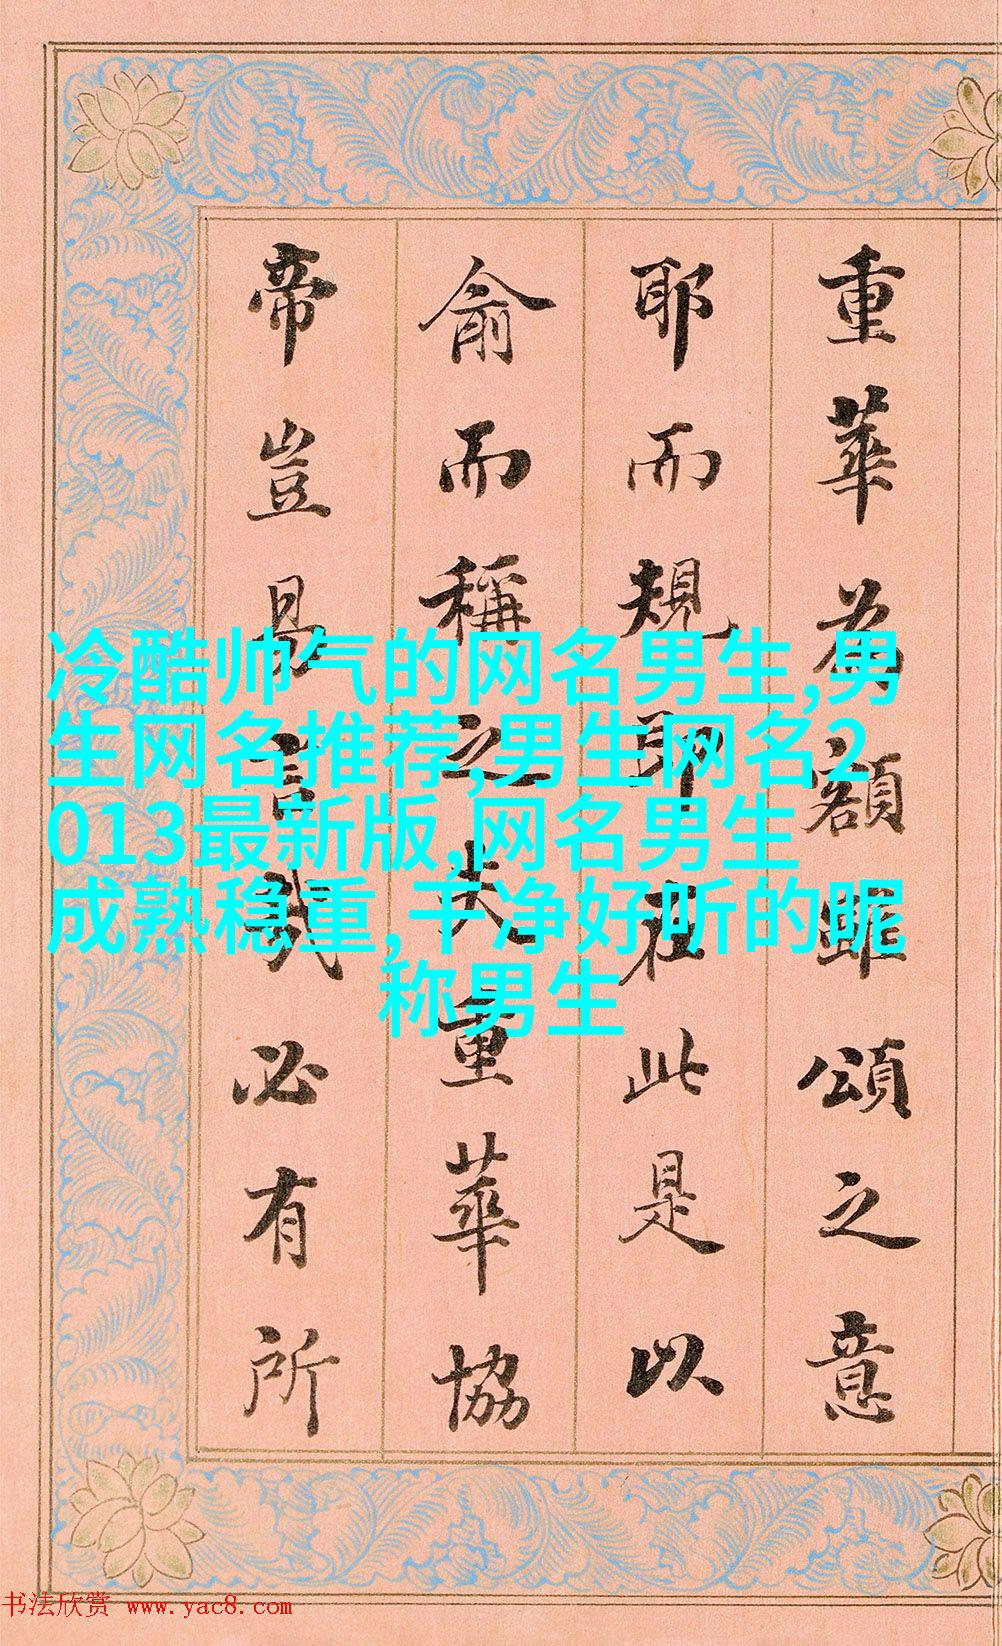 重華為額雖頌之意
耶而規即在此是以
俞而稱之夫重華協
帝豈易言哉必有所
冷酷帅气的网名男生,男
生网名推荐,男生网名2
013最新版,网名男生
成熟稳重,干净好听的昵
称男生
书法欣赏 www.yac8.com